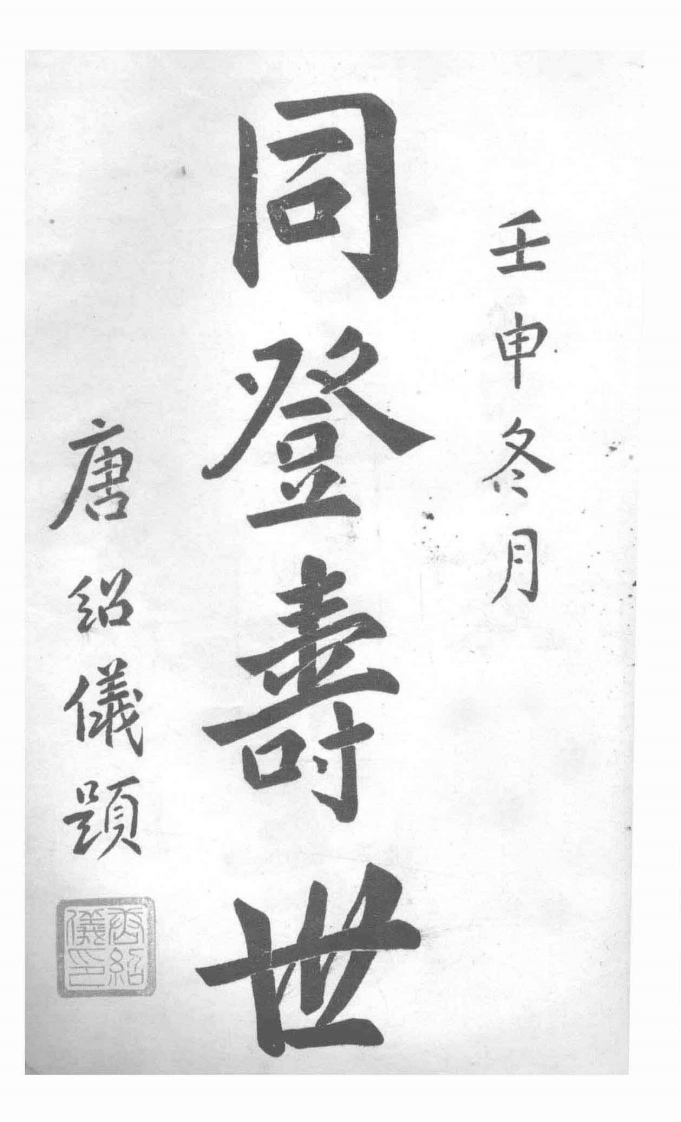 壬申冬月
同登壽世
唐紹儀題
唐紹儀印